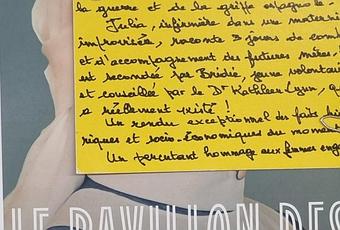 la guerre et de la grippe espagnole.
Julia, infirmière dans une maternité
improvisée, raconte 3 jours de com
et d'accompagnement des futures mères.
est secondée par Bridie, jeune volontai
et conseillée par le Dr Kathleen Lynn, qu
a réellement existé !
Un rendu exceptionnel des faits his
riques et socio-économiques du moment
Un percutant hommage aux femmes enga
LE PAVILLON DES